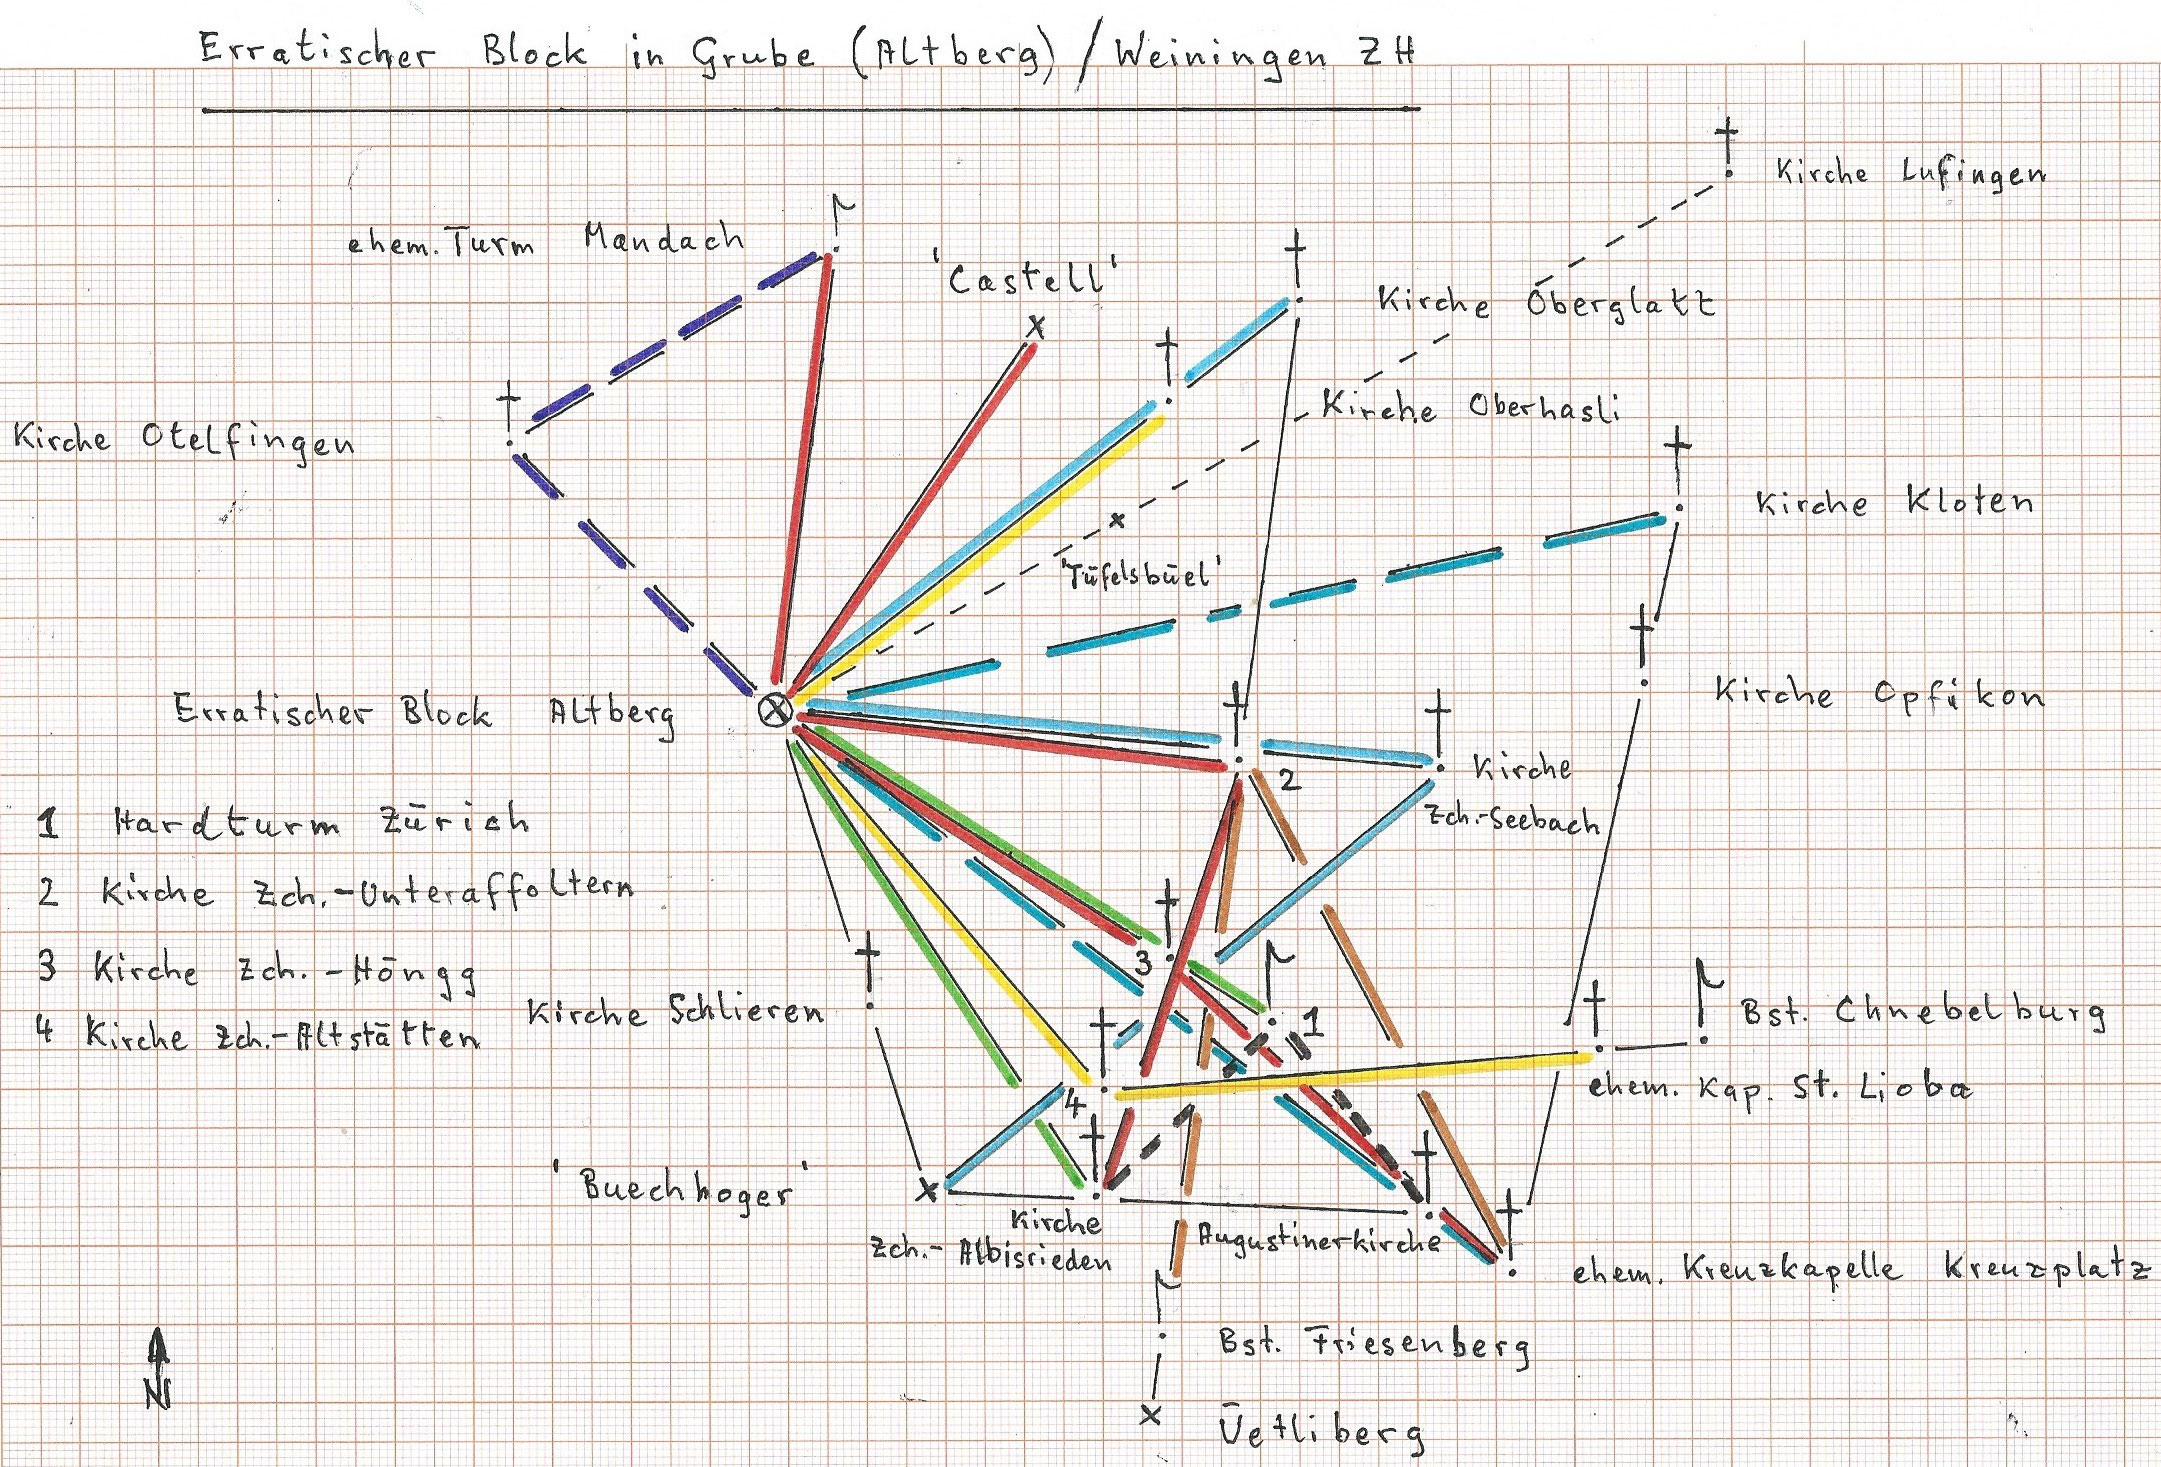 Erratischer Block in Grube (Altberg) / Weiningen ZH
Kirche Lufingen
ehem. Turm Mandach
'Castell'
Kirche Oberglatt
Kirche Oberhasli
Kirche Otelfingen
Kirche Kloten
'Tūfelsbūel'
Kirche Opfikon
Erratischer Block Altberg
2
Kirche
Zch.-Seebach
1 Hardturm Zūrich
2 Kirche Zch.-Unteraffoltern
3 Kirche Zch.-Hōngg
4 Kirche Zch.-Altstātten
3
Kirche Schlieren
1
Bst. Chnebelburg
ehem. Kap. St. Lioba
4
'Buechhoger'
Kirche
Zch.- Albisrieden
Augustinerkirche
ehem. Kreuzkapelle Kreuzplatz
Bst. Friesenberg
N
Ūetliberg